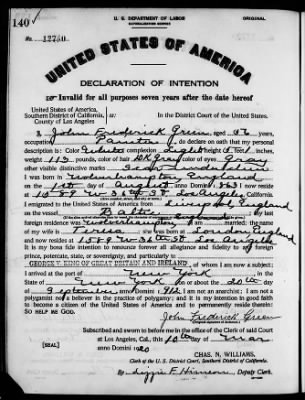 140 ✓
U. S. DEPARTMENT OF LABOR
NATURALIZATION SERVICE
ORIGINAL
No.
UNITED STATES OF AMERICA
DECLARATION OF INTENTION
Invalid for all purposes seven years after the date hereof
United States of America,
Southern District of California,
County of Los Angeles
ss:
In the District Court of the United States.
I, John Frederick Green, aged 56 years,
occupation Painter, do declare on oath that my personal
description is: Color White, complexion Light, height 5 feet 1
inches, weight 112 pounds, color of hair DK Gray color of eyes Gray
other visible distinctive marks
I was born in Wolverhampton, England
on the 1st day of August, anno Domini 1863 I now reside
at 1589 W. 36th St Los Angeles, California.
I emigrated to the United States of America from Liverpool, England
on the vessel Baltic; my last
foreign residence was England; I am married; the name
of my wife is Teresa she was born at London, England
and now resides at 1589 W 36th St. Los Angeles
It is my bona fide intention to renounce forever all allegiance and fidelity to any foreign
prince, potentate, state, or sovereignty, and particularly to
GEORGE V, KING OF GREAT BRITAIN AND IRELAND, of whom I am now a subject:
I arrived at the port of New York, in the
State of New York on or about the 20th day
of September anno Domini 1912 I am not an anarchist: I am not a
polygamist nor a believer in the practice of polygamy; and it is my intention in good faith
to become a citizen of the United States of America and to permanently reside therein:
SO HELP ME GOD.
John Frederick Green
Subscribed and sworn to before me in the office of the Clerk of said Court
at Los Angeles, Cal., this 10th day of Mar
anno Domini 1920
[SEAL]
CHAS. N. WILLIAMS,
Clerk of the U. S. District Court, Southern District of California.
By Deputy Clerk.